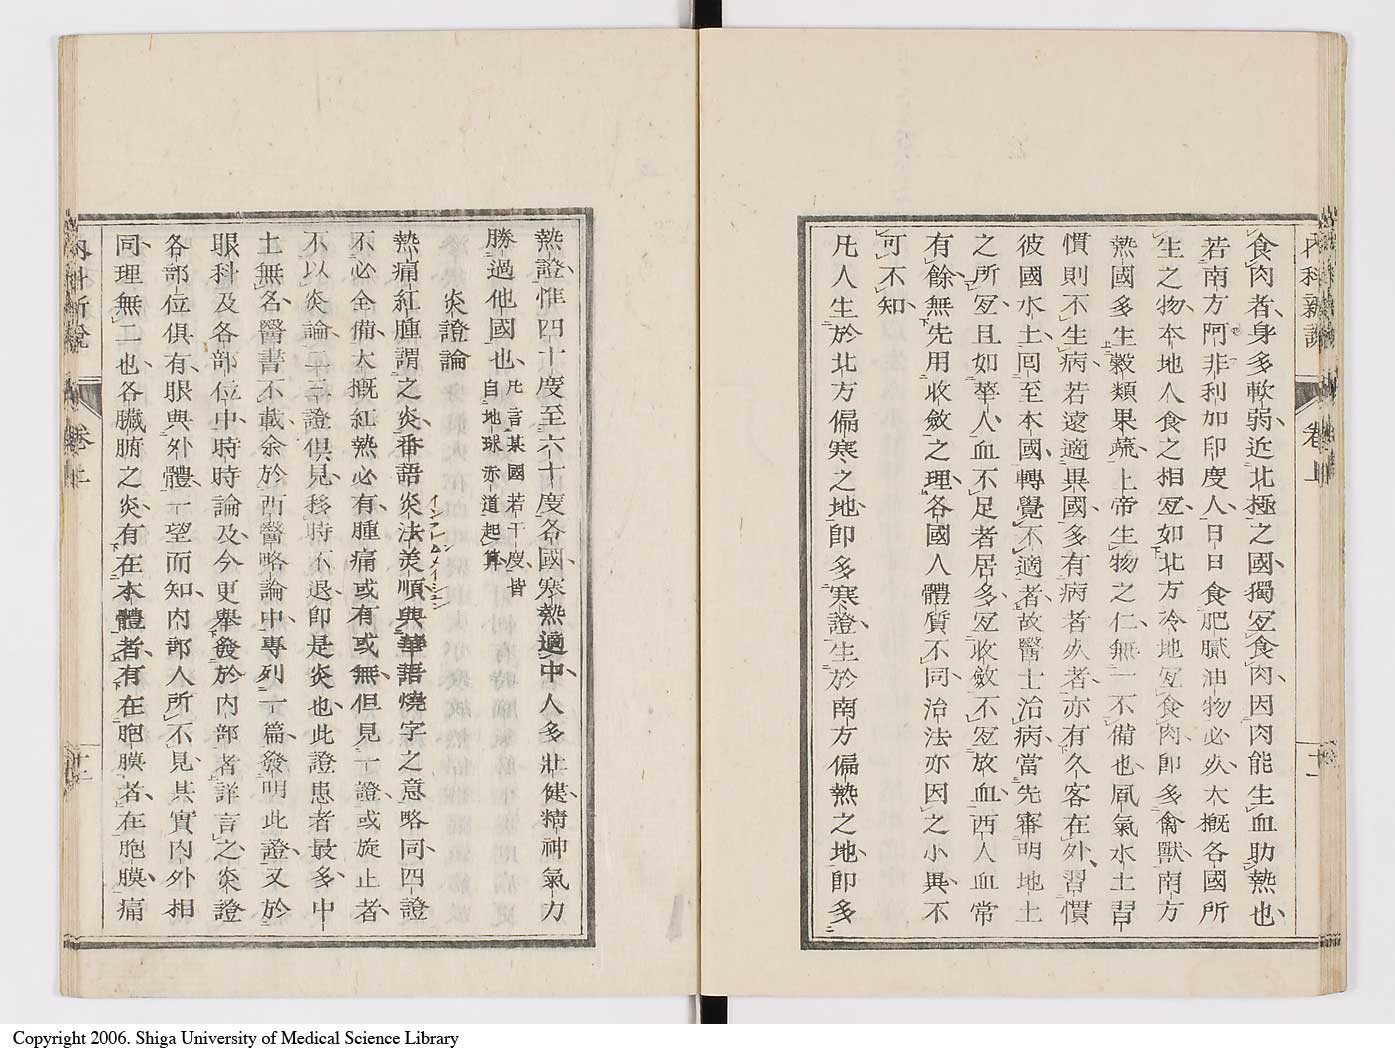 內科新說
卷上
十一
食肉者身多軟弱近北極之國獨宜食肉因肉能生血助熱也
若南方阿非利加印度人日日食肥膩油物必灾大概各國所
生之物本地人食之相宜如北方冷地宜食肉卽多禽獸南方
熱國多生穀類果蔬上帝生物之仁無一不備也風氣水土習
慣則不生病若遠適異國多有病者灾者亦有久客在外習慣
彼國水土回至本國轉覺不適者故醫士治病當先審明地土
之所宜且如華人血不足者居多宜收斂不宜放血西人血常
有餘無先用收斂之理各國人體質不同治法亦因之小異不
可不知
凡人生於北方偏寒之地卽多寒證生於南方偏熱之地卽多
熱證惟四十度至六十度各國寒熱適中人多壯健精神氣力
勝過他國也凡言某國若干度皆
自地球赤道起算
炎證論
熱痛紅腫謂之炎番語炎法美順與華語燒字之意略同四證
インフレムメイション
不必全備大概紅熱必有腫痛或有或無但見一證或旋止者
不以炎論二三證俱見移時不退卽是炎也此證患者最多中
土無名醫書不載余於西醫略論中專列一篇發明此證又於
眼科及各部位中時時論及今更舉發於內部者詳言之炎證
各部位俱有眼與外體一望而知內部人所不見其實內外相
同理無二也各臟腑之炎有在本體者有在胞膜者在胞膜痛
內科新說
卷上
十二
Copyright 2006. Shiga University of Medical Science Library